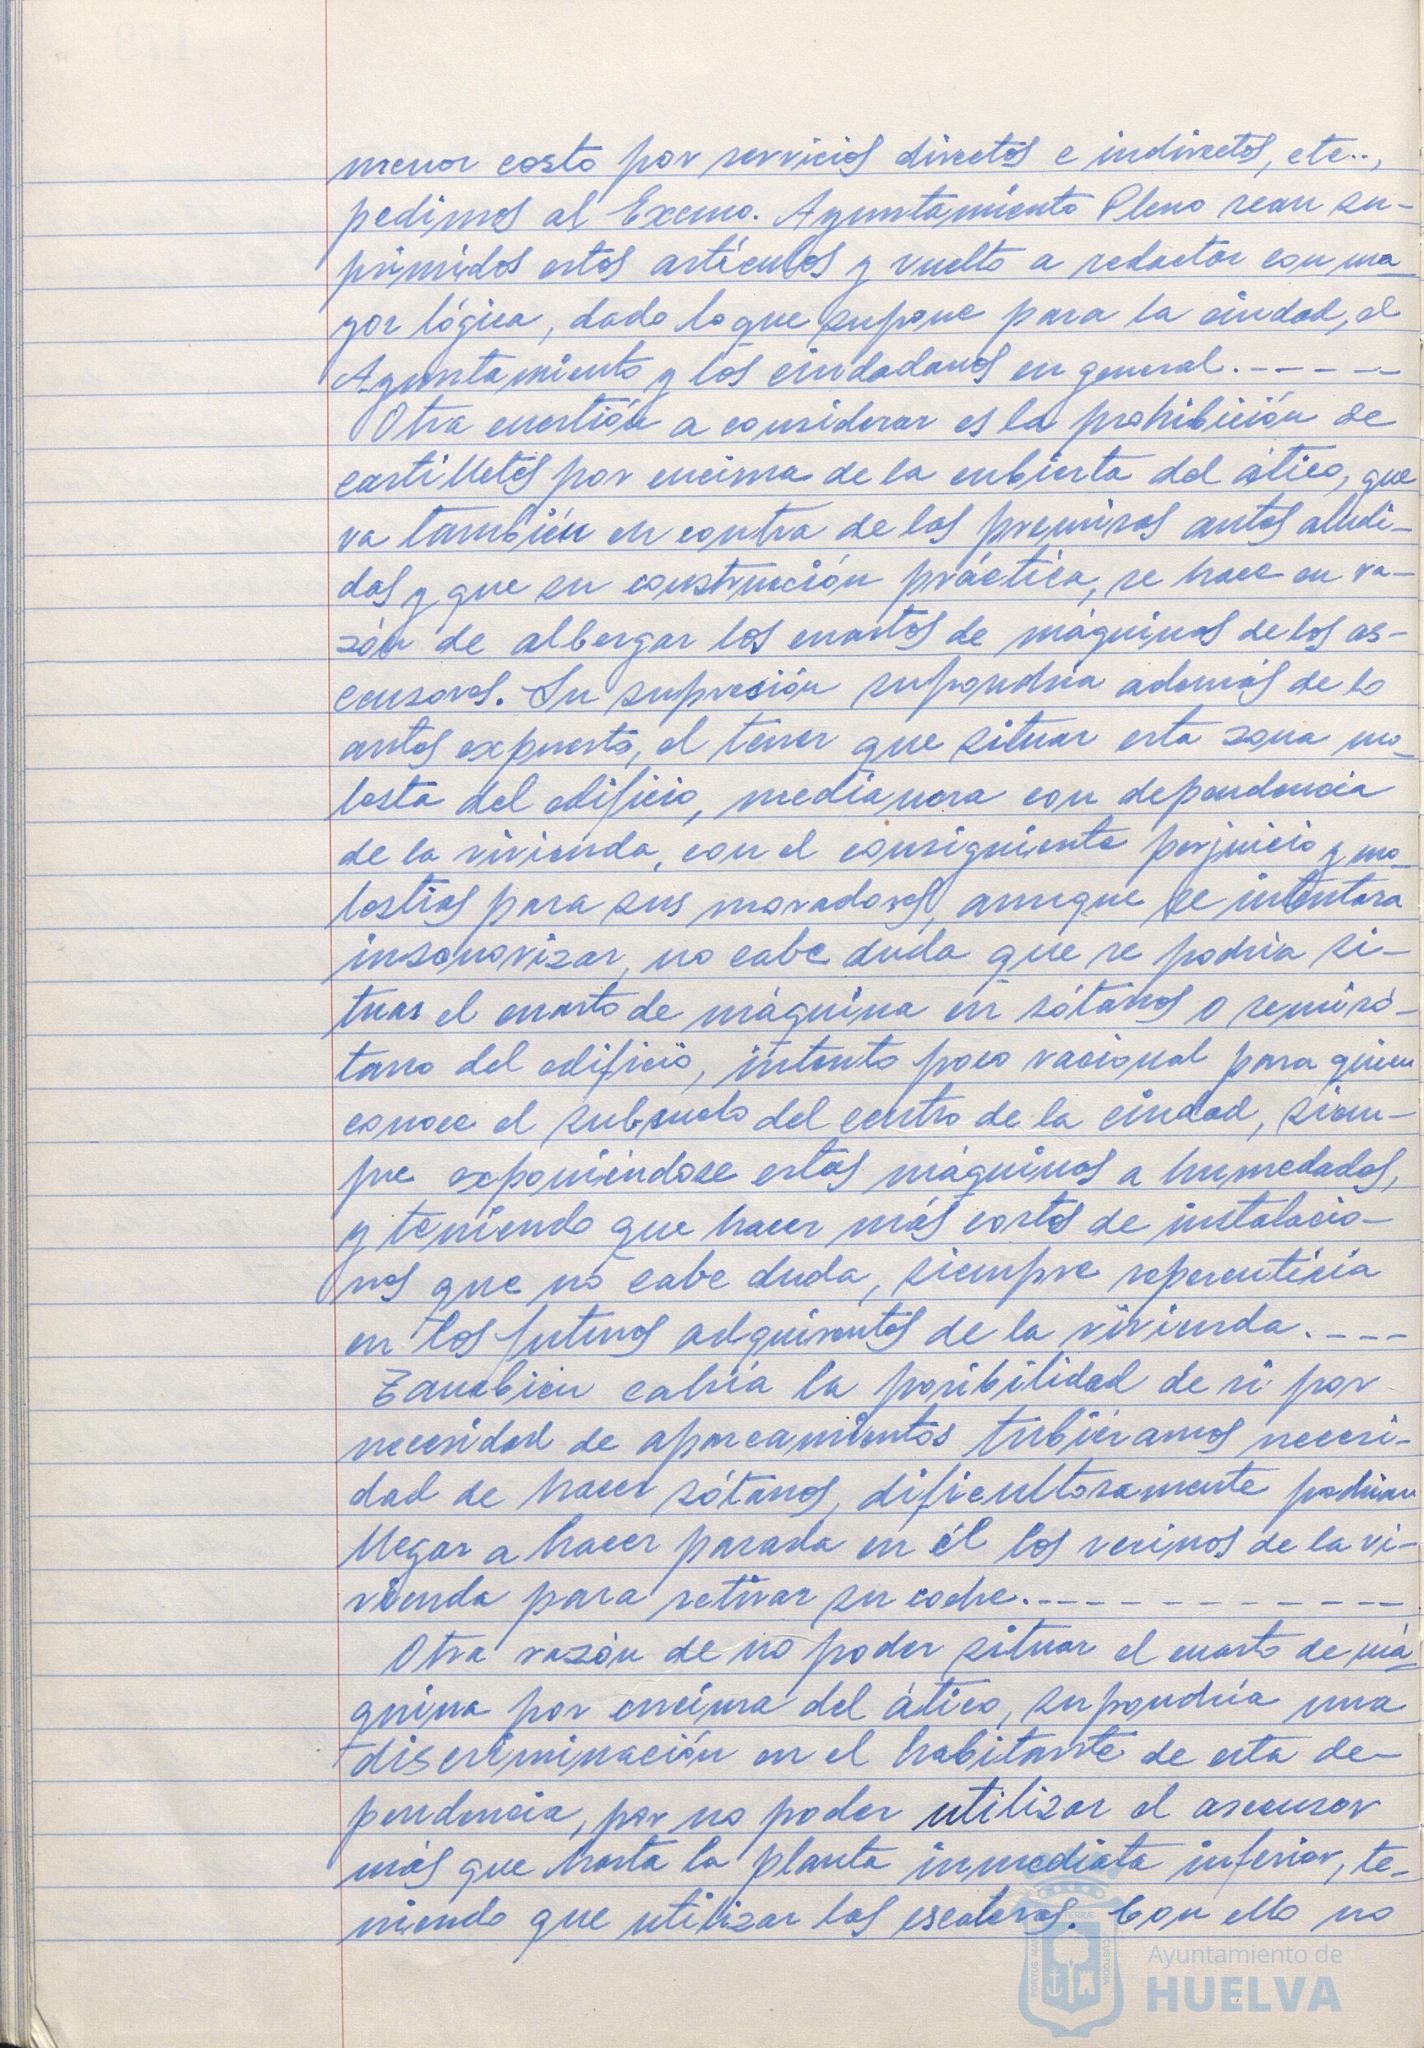 menor costo por servicios directos e indirectos, etc..,
pedimos al Excmo. Ayuntamiento Pleno sean su-
primidos estos artículos y vuelto a redactar con ma
yor lógica, dado lo que supone para la ciudad, el
Ayuntamiento y los ciudadanos en general.-----
Otra cuestión a considerar es la prohibición de
castilletes por encima de la cubierta del ático, que
va también en contra de las premisas antes aludi-
das y que su construcción práctica, se hace en ra-
zón de albergar los cuartos de máquinas de los as-
censores. Su supresión supondría además de lo
antes expuesto, el tener que situar esta zona mo-
lesta del edificio, medianera con dependencia
de la vivienda, con el consiguiente perjuicio y mo-
lestias para sus moradores, aunque se intentara
insonorizar, no cabe duda que se podría si-
tuar el cuarto de máquina en sótanos o semisó-
tano del edificio, intento poco racional para quien
conoce el subsuelo del centro de la ciudad, siem-
pre exponiéndose estas máquinas a humedades,
y teniendo que hacer más costos de instalacio-
nes que no cabe duda, siempre repercutiría
en los futuros adquirentes de la vivienda.----
Tambien cabría la posibilidad de si por
necesidad de aparcamientos tubiéramos necesi-
dad de hacer sótanos, dificultosamente podrían
llegar a hacer parada en él los vecinos de la vi-
vienda para retirar su coche.-----------
Otra razón de no poder situar el cuarto de má-
quina por encima del ático, supondría una
discriminación en el habitante de esta de-
pendencia, por no poder utilizar el ascensor
más que hasta la planta inmediata inferior, te-
niendo que utilizar las escaleras. Con ello no
Ayuntamiento de
HUELVA